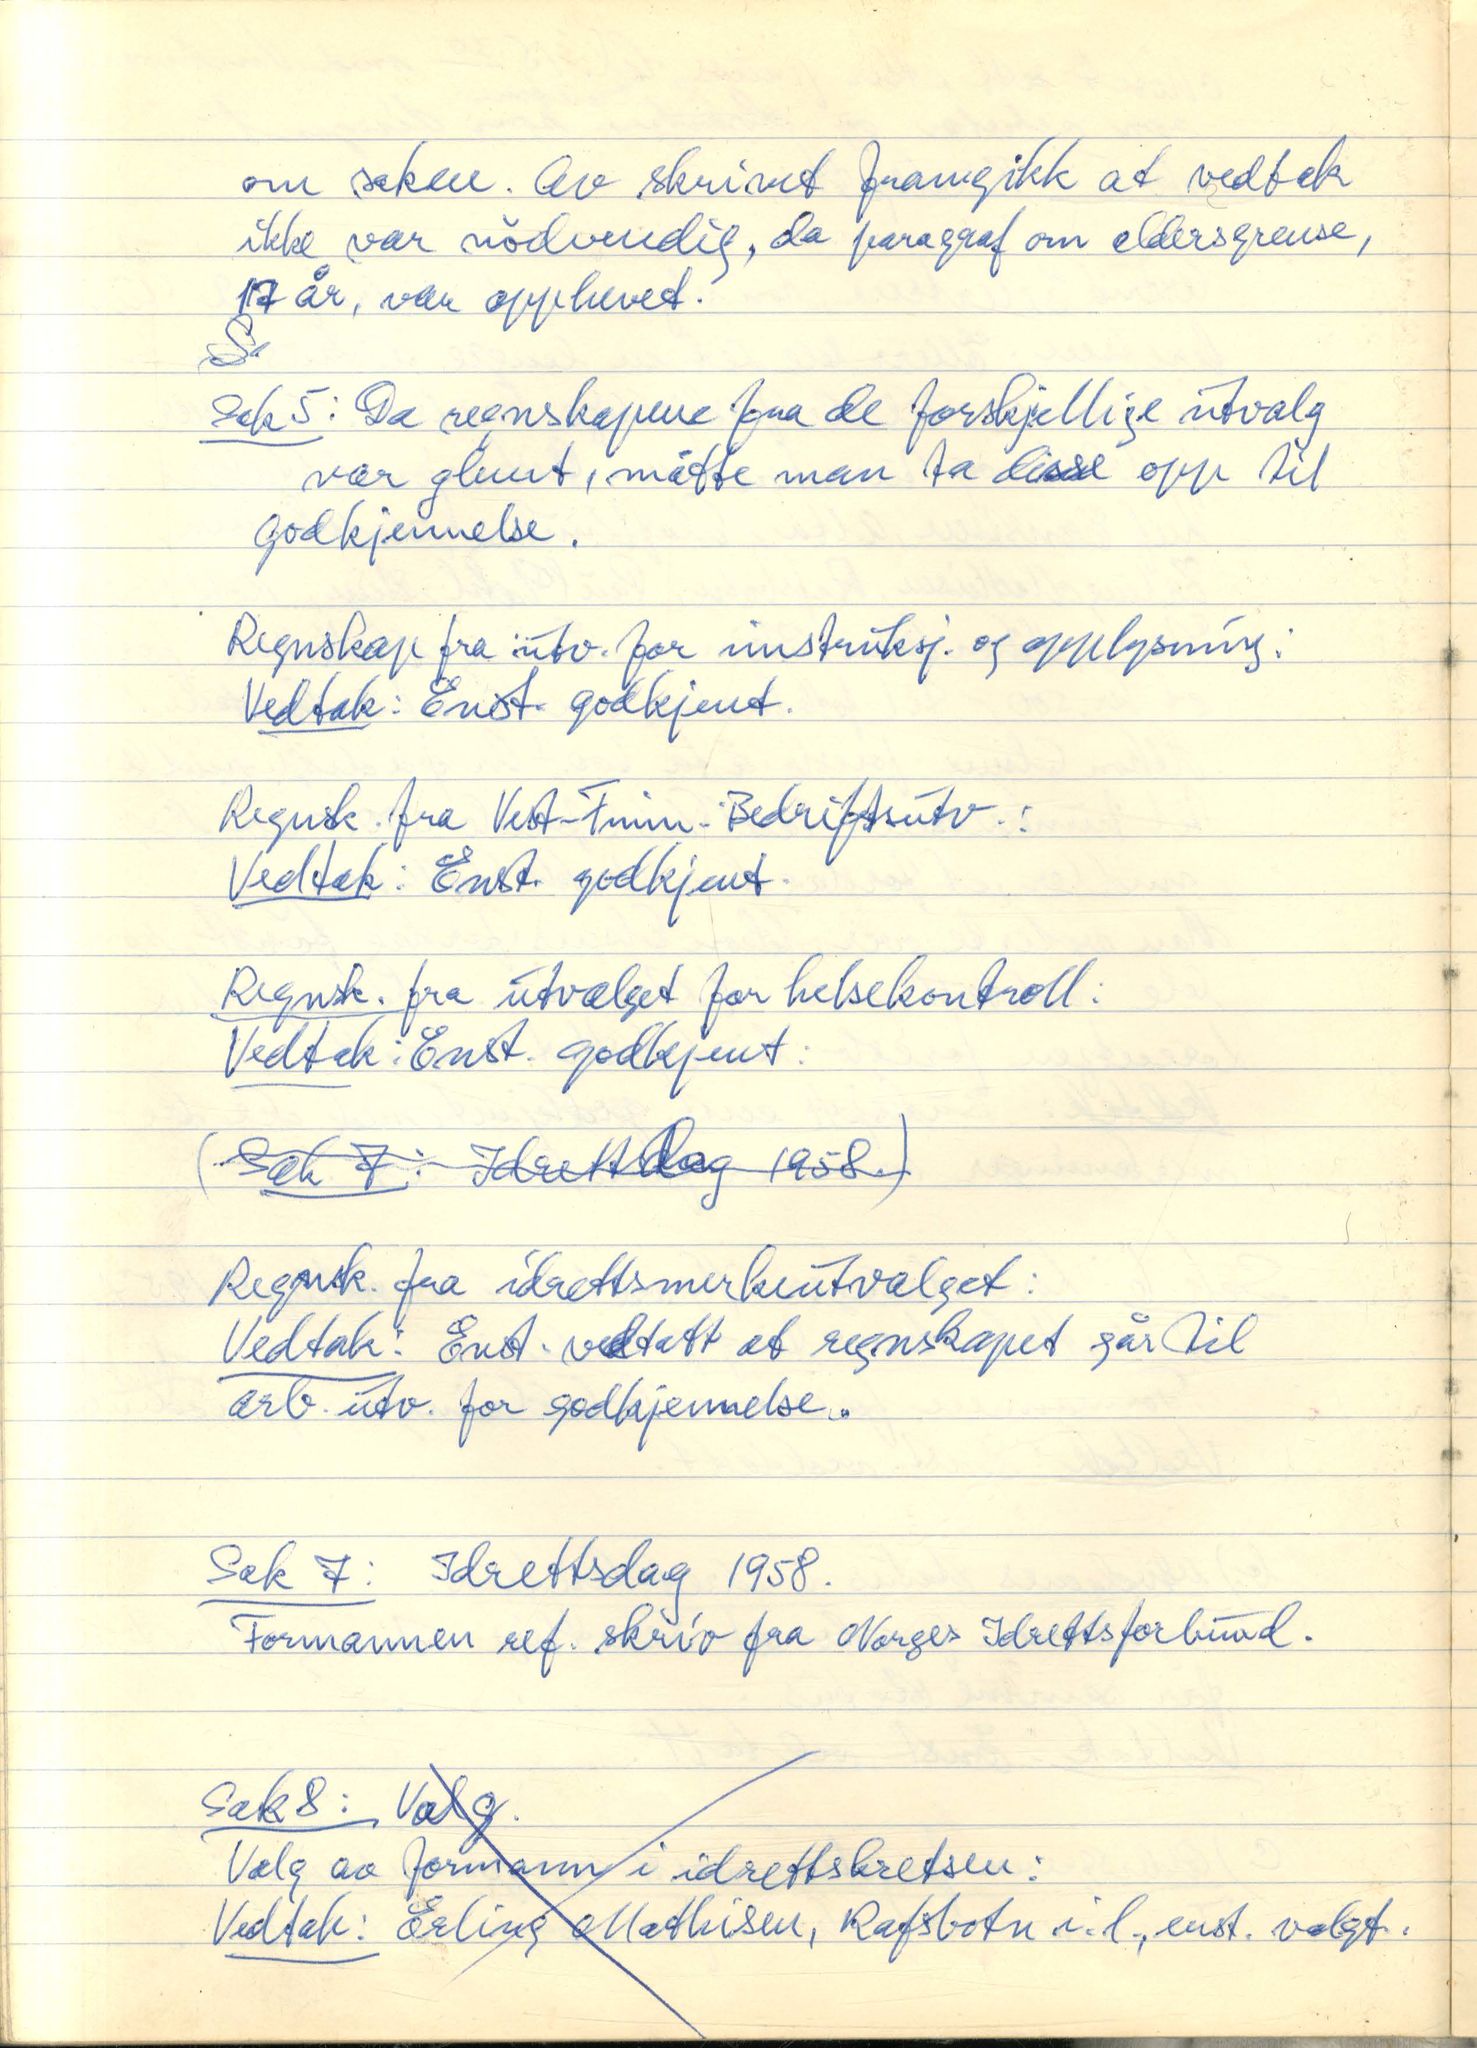 om saken. Av skrivet framgikk at vedtak
ikke var nödvendig, da paragraf om aldersgrense,
17 år, var opphevet.
S.
Sak 5: Da regnskapene fra de forskjellige utvalg
var glemt, måtte man ta disse opp til
godkjennelse.
Regnskap fra utv. for instruksj. og opplysning:
Vedtak: Enst. godkjent.
Regnsk. fra Vest-Finn. Bedriftsutv.:
Vedtak: Enst. godkjent.
Regnsk. fra utvalget for helsekontroll:
Vedtak: Enst. godkjent:
(Sak 7: Idrettsdag 1958.)
Regnsk. fra idrettsmerkeutvalget:
Vedtak: Enst. vedtatt at regnskapet går til
arb. utv. for godkjennelse.
Sak 7: Idrettsdag 1958.
Formannen ref. skriv fra Norges Idrettsforbund.
Sak 8: Valg.
Valg av formann i idrettskretsen:
Vedtak: Erling Mathisen, Rafsbotn i.l., enst. valgt.